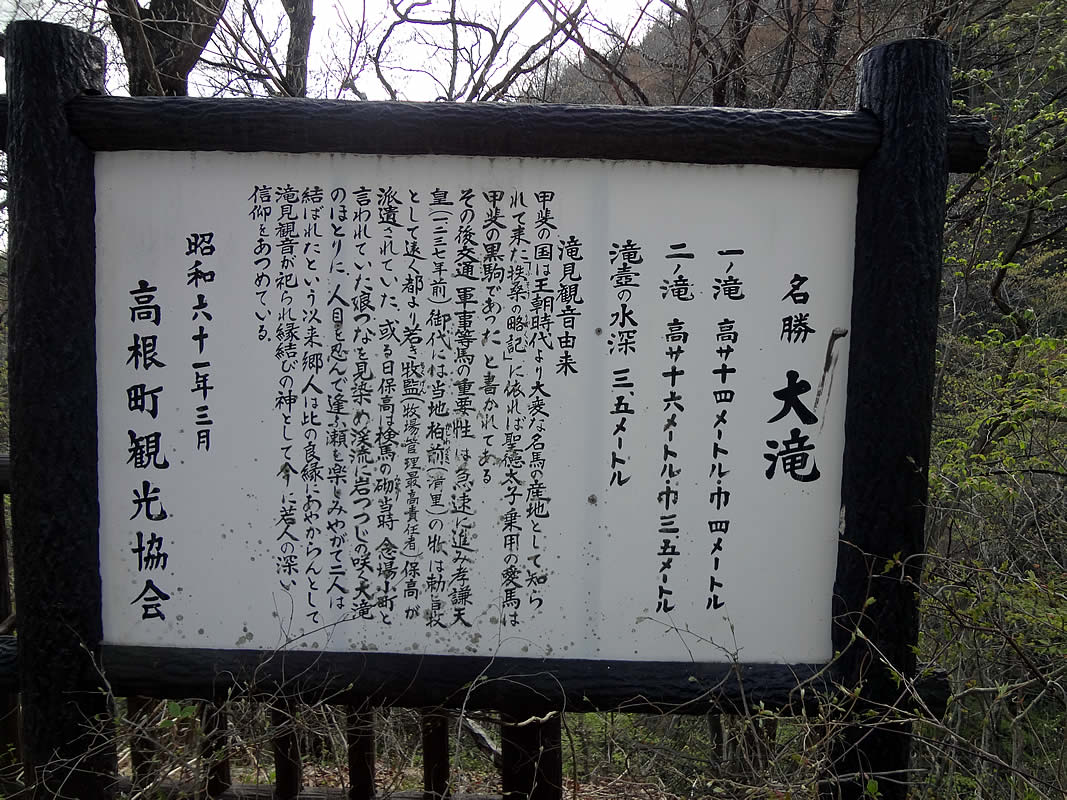 名勝 大滝
一ノ滝 高サ十四メートル・巾 四メートル
二ノ滝 高サ十六メートル・巾三.五メートル
滝壺の水深 三.五メートル
滝見観音由来
甲斐の国は王朝時代より大変な名馬の産地として知ら
れて来た扶桑の略記」に依れば聖徳太子乗用の愛馬は
甲斐の黒駒であった と書かれてある
その後交通 軍事等馬の重要性は急速に進み孝謙天
皇(一二三七年前)御代には当地柏前(清里)の牧は勅旨牧
として遠く都より若き牧監(牧場管理最高責任者)保高が
派遣されていた、或る日保高は検馬の砌当時 念場小町と
言われていた つなを見染め渓流に岩つつじの咲く大滝
のほとりに、人目を忍んで逢ふ瀬を楽しみやがて二人は
結ばれたという次来郷人は此の良縁にあやからんとして
滝見観音が祀られ縁結びの神として今に若人の深い
信仰をあつめている。
昭和六十一年三月
高根町観光協会